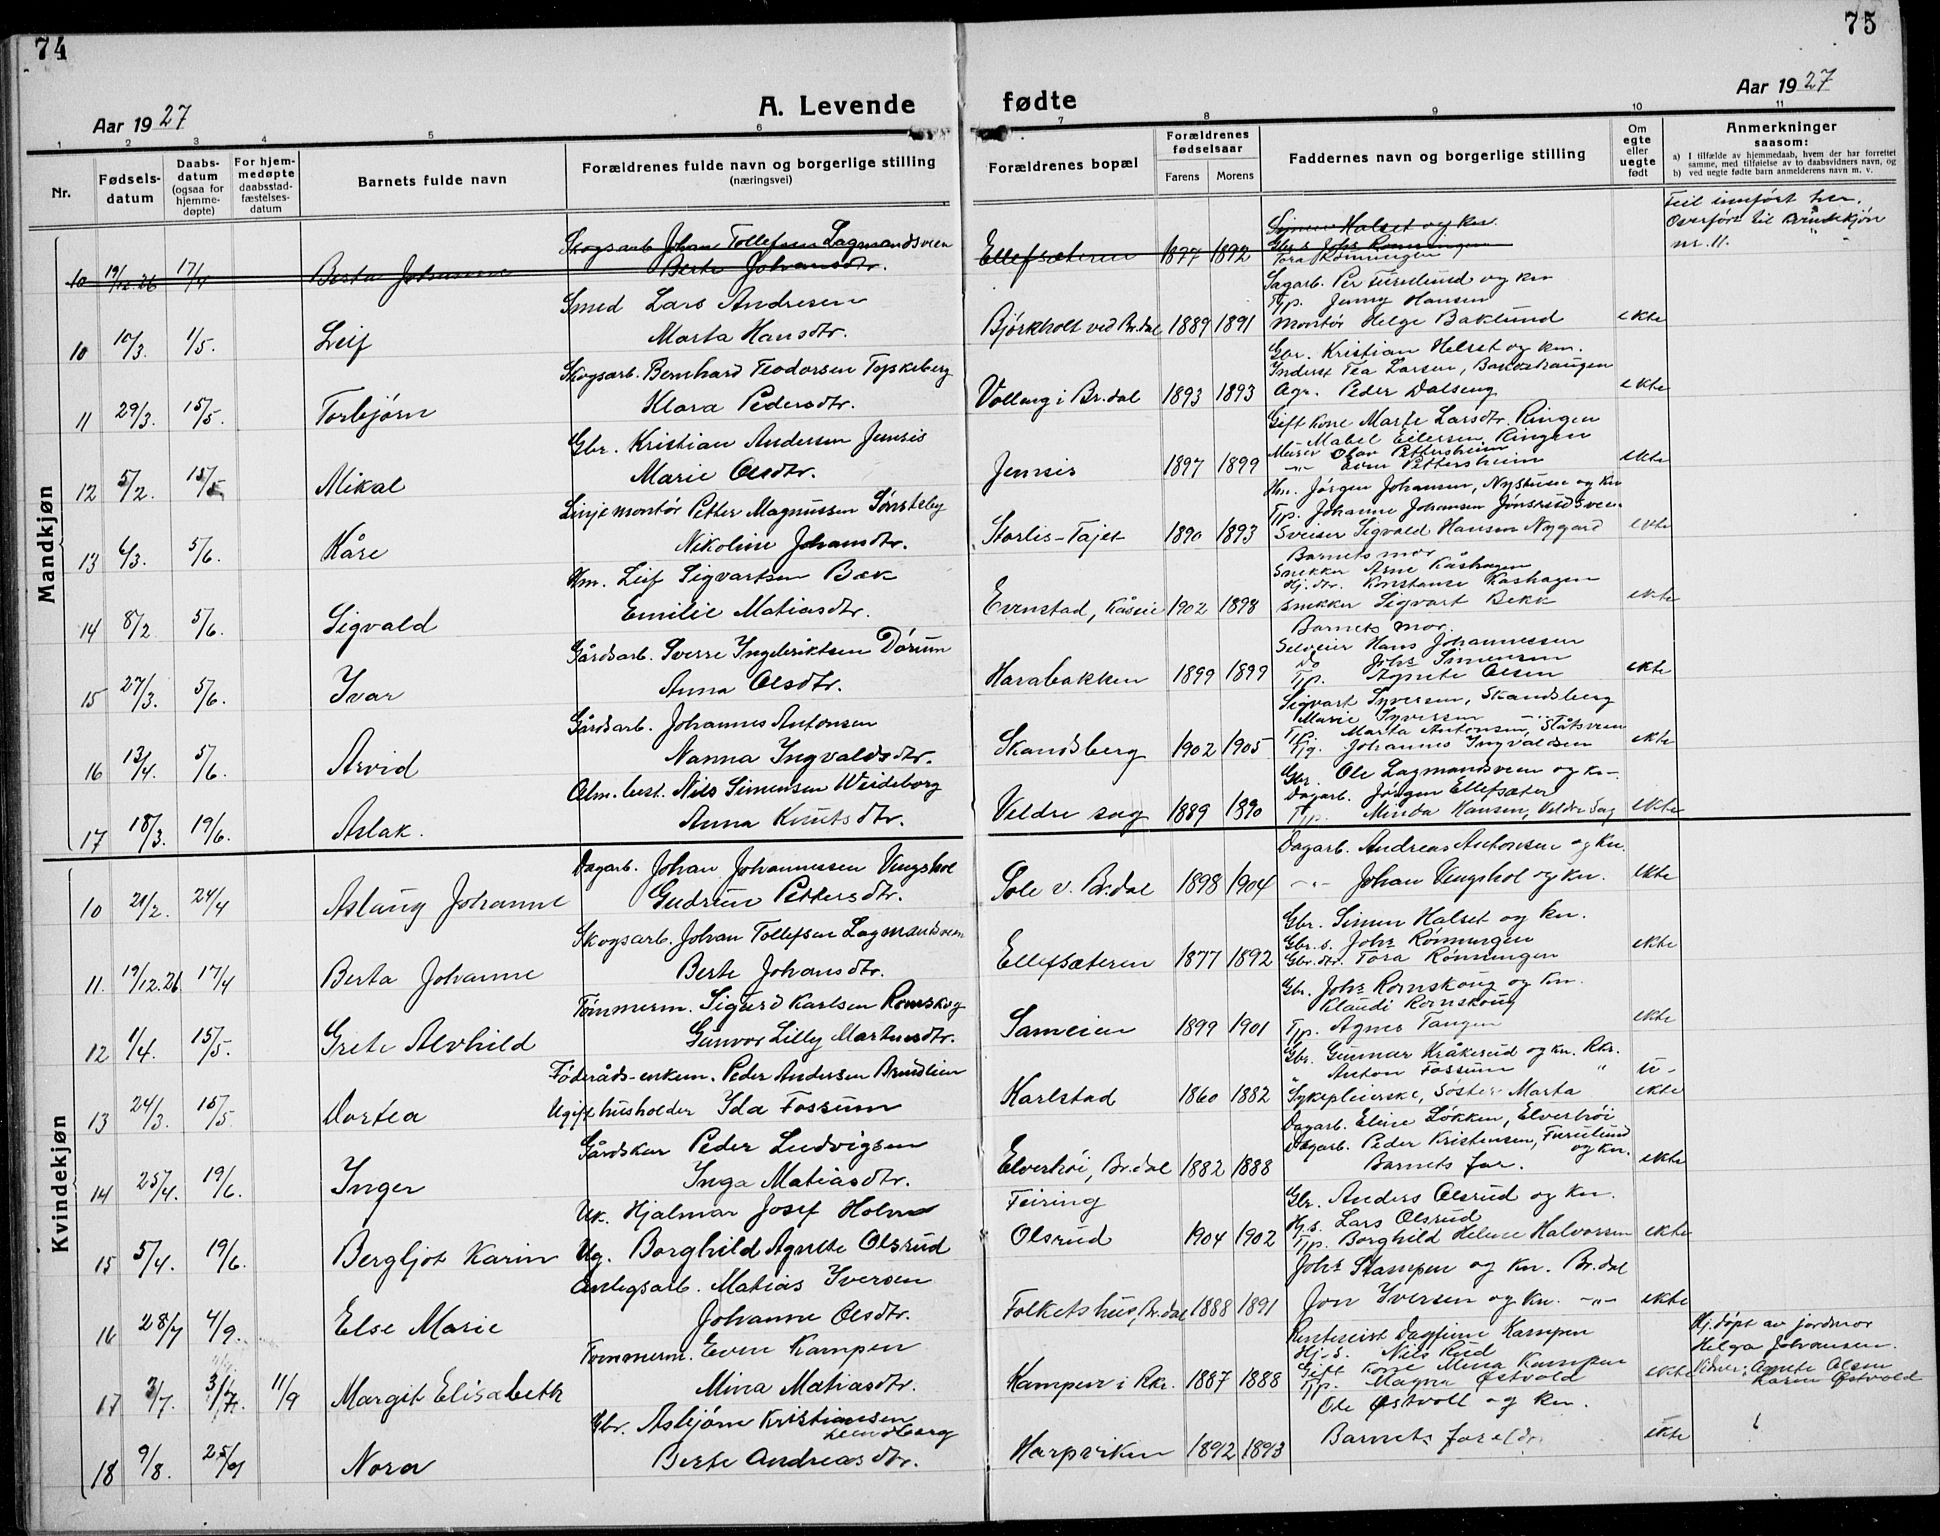 74
75
Aar 1927
A. Levende
fødte
Aar 1927
1 2 3 4 5 6 7 8 9 10 11
Nr.
Fødsels-
datum
Daabs-
datum
(ogsaa for
hjemme-
døpte)
For hjem-
medøpte
daabsstad-
fæstelses-
datum
Barnets fulde navn
Forældrenes fulde navn og borgerlige stilling
(næringsvei)
Forældrenes bopæl
Forældrenes
fødselsaar
Farens Morens
Faddernes navn og borgerlige stilling
Om
egte
eller
uegte
født
Anmerkninger
saasom:
a) I tilfælde av hjemmedaab, hvem der har forrettet
samme, med tilføielse av to daabsvidners navn, og
b) ved uegte fødte barn anmelderens navn m. v.
Mandkjøn
Skogsarb. Johan Tollefsen Lagmandsveen
Simen Halset og kn.
Feil innført her.
10 19/12.26 17/4 Berta Johanne
Berte Johansdtr.
Ellefsæteren 1877 1892
Gbr.s. Johs Rønningen
Tora Rønningen
Overført til Kvindekjøn
nr. 11.
Smed Lars Andresen
Sagarb. Per Furulund og kn
Tjp. Jenny Hansen
10 10/3. 1/5. Leif
Marta Hansdtr.
Bjørkholt ved Br.dal 1889 1891
Montør Helge Baklund
ekte
Skogsarb. Bernhard Teodorsen Topskeberg
Gbr. Kristian Helset og kn.
Inderst Tea Larsen, Bakkehaugen
11 29/3. 15/5. Torbjørn
Klara Pedersdtr.
Volleng i Br.dal 1893 1893
Agr. Peder Dalseng
ekte
Gbr. Kristian Andersen Jensis
Gift kone Marte Larsdtr. Ringen
Mabel Eilersen Ringen
Murer Olav Pettersheim
12 5/2. 15/5 Mikal
Marie Olsdtr.
Jensis 1897 1899
-"- Even Pettersheim
ekte
Linjemontør Petter Magnussen Sønsteby
Hm. Jørgen Johansen, Nyshusen og kn
Tjp. Johanne Johansen Jønsrudsveen
13 6/3. 5/6. Kåre
Nikoline Johansdtr.
Storlis-Tajet 1890 1893
Sveiser Sigvald Hansen Nygard
ekte
Hm. Leif Sigvartsen Bæk
Barnets mor
Snekker Arne Kåshagen
Hj.dtr. Konstanse Kåshagen
14 8/2. 5/6. Sigvald
Emilie Matiasdtr.
Evenstad, Kåsvie 1902 1898
snekker Sigvart Bekk
ekte
Gårdsarb. Sverre Ingebriktsen Dørum
Barnets mor.
Selveier Hans Johannessen
Do Johs Simensen
15 27/3. 5/6. Ivar
Anna Olsdtr.
Harabakken 1899 1899
Tjp. Agnete Olsen
ekte
Gårdsarb. Johannes Antonsen
Sigvart Syversen, Skandsberg
Marie Syversen -"-
Tjp. Marta Antonsen, Slåtsveen
16 13/4. 5/6. Arvid
Nanna Ingvaldsdtr.
Skandsberg 1902 1905
Tjg. Johannes Ingvaldsen
ekte
Alm. best. Nils Simensen Weideborg
Gbr. Ole Lagmandsveen og kn.
Dagarb. Jørgen Ellefsæter
17 18/3. 19/6. Aslak.
Anna Knutsdtr.
Veldre sag 1889 1890
Tjp. Minda Hansen, Veldre Sag
ekte
Kvindekjøn
Dagarb. Johan Johannessen Vengshol
Dagarb. Andreas Antonsen og kn.
10 20/2. 24/4 Aslaug Johanne
Gudrun Pettersdtr.
Sole v. Br.dal 1898 1904
-"- Johan Vengshol og kn.
ekte
Skogsarb. Johan Tollefsen Lagmandsveen
Gbr. Simen Halset og kn.
Gbr.s. Johs Rønningen
11. 19/12.26 17/4 Berta Johanne
Berte Johansdtr.
Ellefsæteren 1877 1892
Gbr.dtr. Tora Rønningen
ekte
Tømmerm. Sigurd Karlsen Romskog
Gbr. Johs Romskoug og kn.
Klaudi Romskoug
12 1/4. 15/5. Grete Alvhild
Gunvor Lilly Martinsdtr.
Sameien 1899 1901
Tjp. Agnes Tangen
ekte
Føderåds-enkem. Peder Andersen Brudlien
Gbr. Gunnar Kråkerud og kn. Rkr.
Anton Fossum " u-
13 24/3. 15/5 Dortea
Ugift husholder Ida Fossum
Karlstad 1860 1882
Sykepleierske, Søster Marta
ekte
Gårdskar Peder Ludvigsen
Dagarb. Eline Løkken, Elverhøi
Dagarb. Peder Kristensen, Furulund
og kn.
14 25/4. 19/6. Inger
Inga Matiasdtr.
Elverhøi, Br.dal 1882 1888
Barnets far.
ekte
Uk. Hjalmar Josef Holm
Feiring
Gbr. Anders Olsrud og kn.
Hj.s. Lars Olsrud
15 5/4. 19/6. Bergljot Karin
Ug. Borghild Agnete Olsrud
Olsrud 1904 1902
Tjp. Borghild Helene Halvorsen
ekte
Anlegsarb. Matias Iversen
Johs Stampen og kn. Br.dal
16 28/7 4/9. Else Marie
Johanne Olsdtr.
Folketshus, Br.dal 1888 1891
Jon Iversen og kn. -"-
ekte
Tømmerm. Even Kampen
Rentenist Dagfinn Kampen
Hj.s. Nils Rud
Gift kone Mina Kampen
Hj. døpt av jordmor
Helga Johansen.
17 3/7. 3/7. 11/9 Margit Elisabeth
Mina Matiasdtr.
Kampen i Rkr. 1887 1888
Tjp. Magna Østvold
ekte
Vidner: Agnete Olsen
Karin Østvold
Gbr. Asbjørn Kristiansen
Lundberg
Ole Østvoll og kn.
18 9/8. 25/9 Nora
Berte Andreasdtr.
Harpviken 1892 1893
Barnets foreldre
ekte